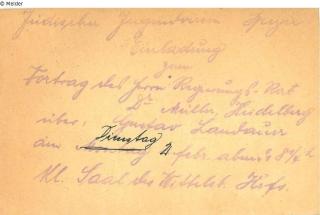 © Melder
Jüdischer Jugendverein Speyer
Einladung
zum
Vortrag des Herrn Regierungs-Rat
Dr. Müller, Heidelberg
über: Gustav Landauer
am Dienstag 2 Febr. abends 8¼ h
Kl. Saal des Wittelsb. Hofs.